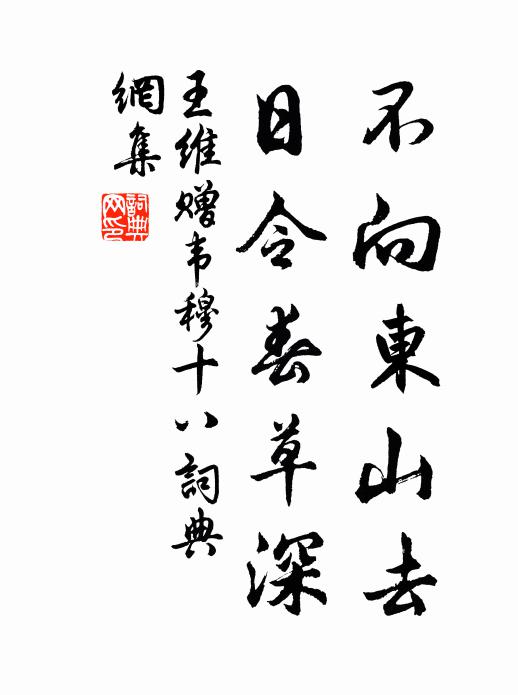 不向東山去
日令春草深
王維赠韦穆十八詞典
網集
詞典
网印